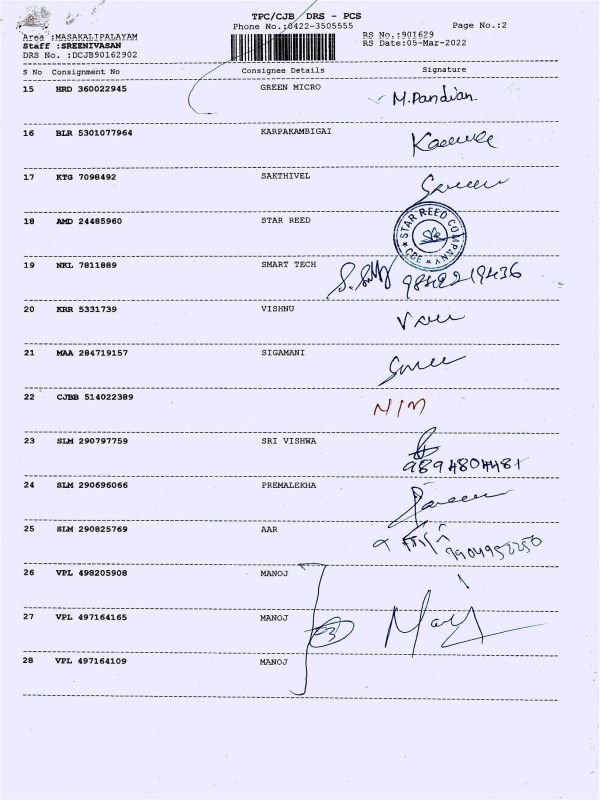 TPC/CJB DRS - PCS
Phone No.:0422-3505555 Page No.:2
Area :MASAKALIPALAYAM RS No.:901629
Staff :SREENIVASAN RS Date:05-Mar-2022
DRS No. :DCJB90162902
S No Consignment No Consignee Details Signature
15 HRD 360022945 GREEN MICRO M.Pandian
16 BLR 5301077964 KARPAKAMBIGAI
17 KTG 7098492 SAKTHIVEL
18 AMD 24485960 STAR REED STAR REED COMPANY CBE
19 NKL 7811889 SMART TECH 9842219436
20 KRR 5331739 VISHNU
21 MAA 284719157 SIGAMANI
22 CJBB 514022389 N/M
23 SLM 290797759 SRI VISHWA
9894804481
24 SLM 290696066 PREMALEKHA
25 SLM 290825769 AAR
26 VPL 498205908 MANOJ
27 VPL 497164165 MANOJ
28 VPL 497164109 MANOJ